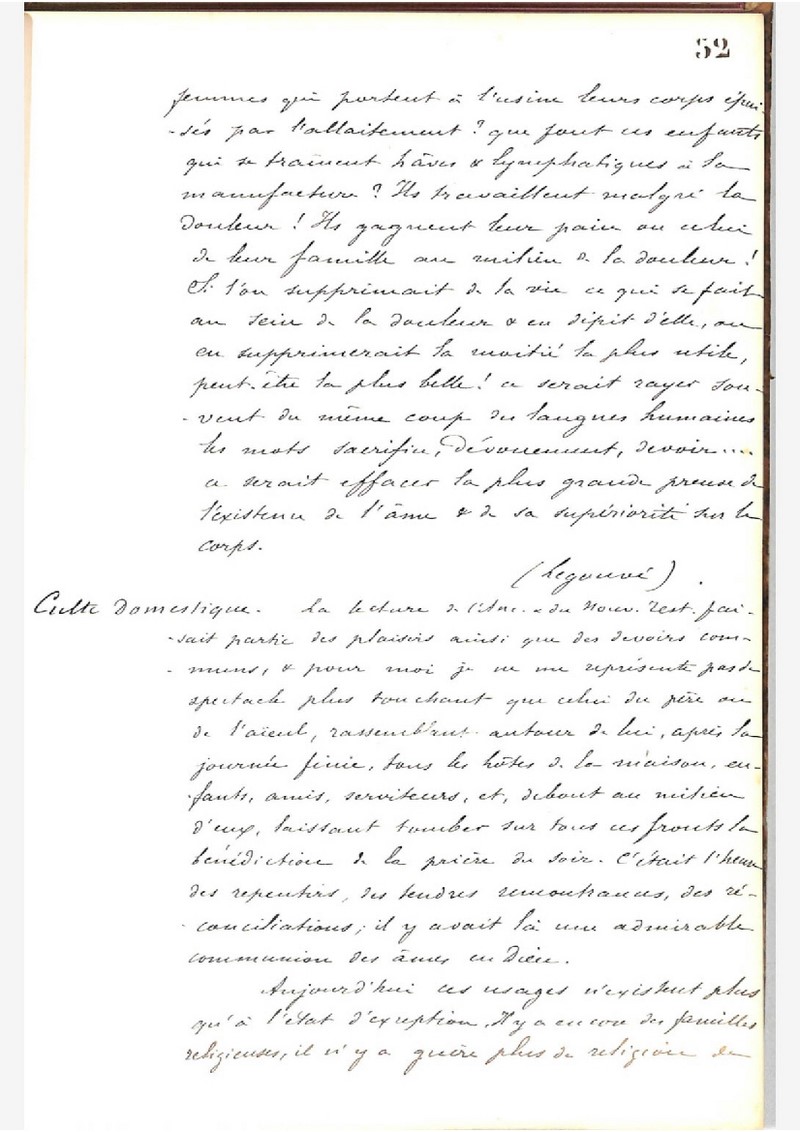 52
femmes qui portent à l'usine leurs corps épui-
-sés par l'allaitement ? que font ces enfants
qui se traînent hâves & lymphatiques à la
manufacture ? Ils travaillent malgré la
douleur ! Ils gagnent leur pain ou celui
de leur famille au milieu de la douleur !
Si l'on supprimait de la vie ce qui se fait
au sein de la douleur & en dépit d'elle, on
en supprimerait la moitié la plus utile,
peut-être la plus belle ! ce serait rayer sou-
-vent du même coup des langues humaines
les mots sacrifice, dévouement, devoir....
ce serait effacer la plus grande preuve de
l'existence de l'âme & de sa supériorité sur le
corps.
(Legouvé).
Culte Domestique. La lecture de l'Anc. & du Nouv. Test. fai-
-sait partie des plaisirs ainsi que des devoirs com-
-muns, & pour moi je ne me représente pas de
spectacle plus touchant que celui du père ou
de l'aïeul, rassemblant autour de lui, après la
journée finie, tous les hôtes de la maison, en-
-fants, amis, serviteurs, et, debout au milieu
d'eux, laissant tomber sur tous ces fronts la
bénédiction de la prière du soir. C'était l'heure
des repentirs, des tendres remontrances, des ré-
-conciliations; il y avait là une admirable
communion des âmes en Dieu.
Aujourd'hui ces usages n'existent plus
qu'à l'état d'exeption. Il y a encore des familles
religieuses, il n'y a guère plus de religion de